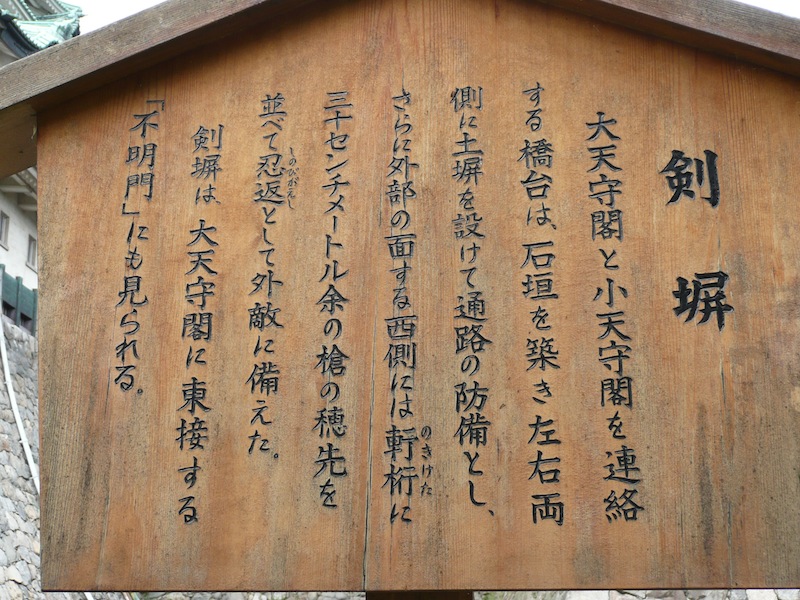 剣塀
大天守閣と小天守閣を連絡
する橋台は、石垣を築き左右両
側に土塀を設けて通路の防備とし、
さらに外部の面する西側には軒桁に
のきけた
三十センチメートル余の槍の穂先を
並べて忍返として外敵に備えた。
しのびがえし
剣塀は、大天守閣に東接する
「不明門」にも見られる。